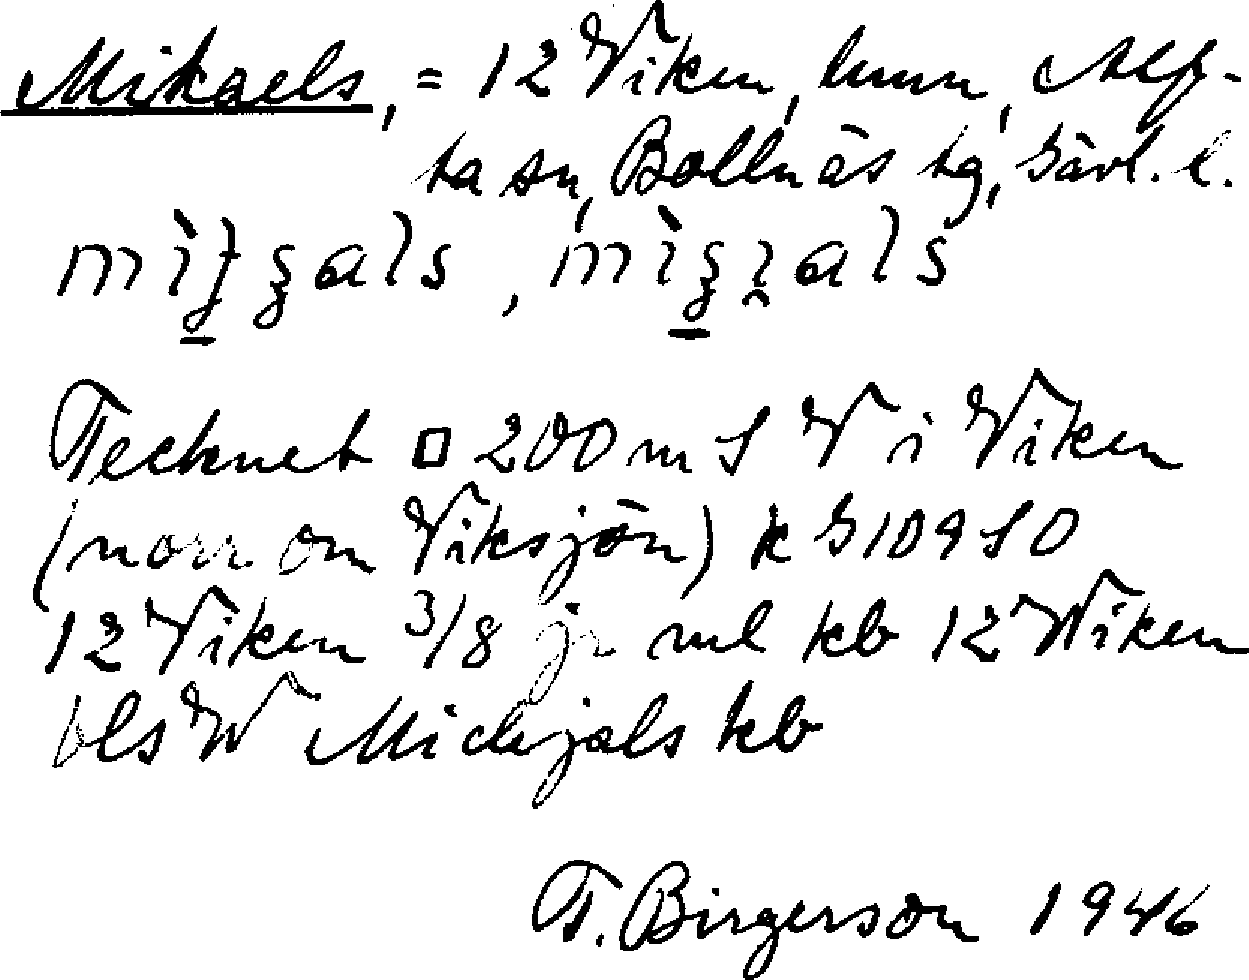 Mikaels, = 12 Viken, hmn, Alf-
ta sn, Bollnäs tg, Gävl. l.
Tecknet □ 200 m S V i Viken
(norr om Viksjön) k G 109 SO
12 Viken 3/8 jr ml kb 12 Wiken
bls W Michjals kb
T. Birgerson 1946